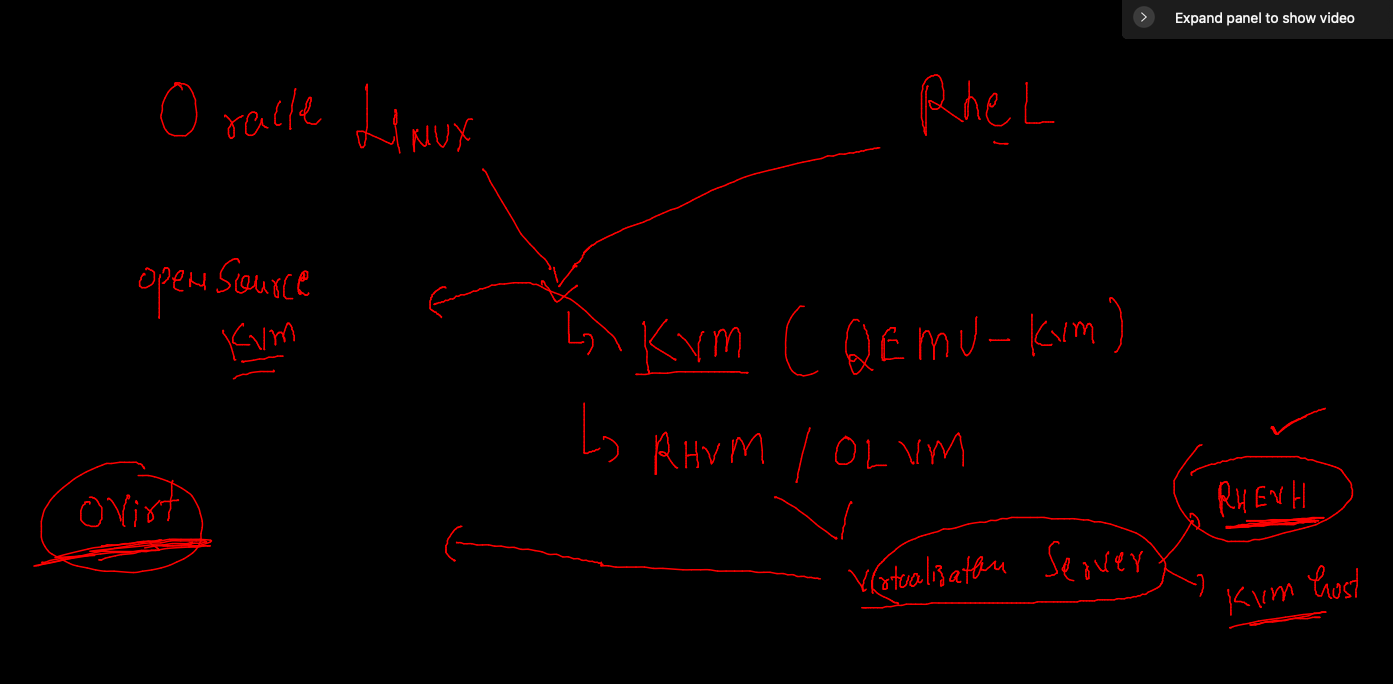 Expand panel to show video
Oracle Linux
RheL
open Source
KVM
KVM ( QEMU - KVM )
RHVM / OLVM
OVirt
RHEVH
Virtualization Server
KVM host